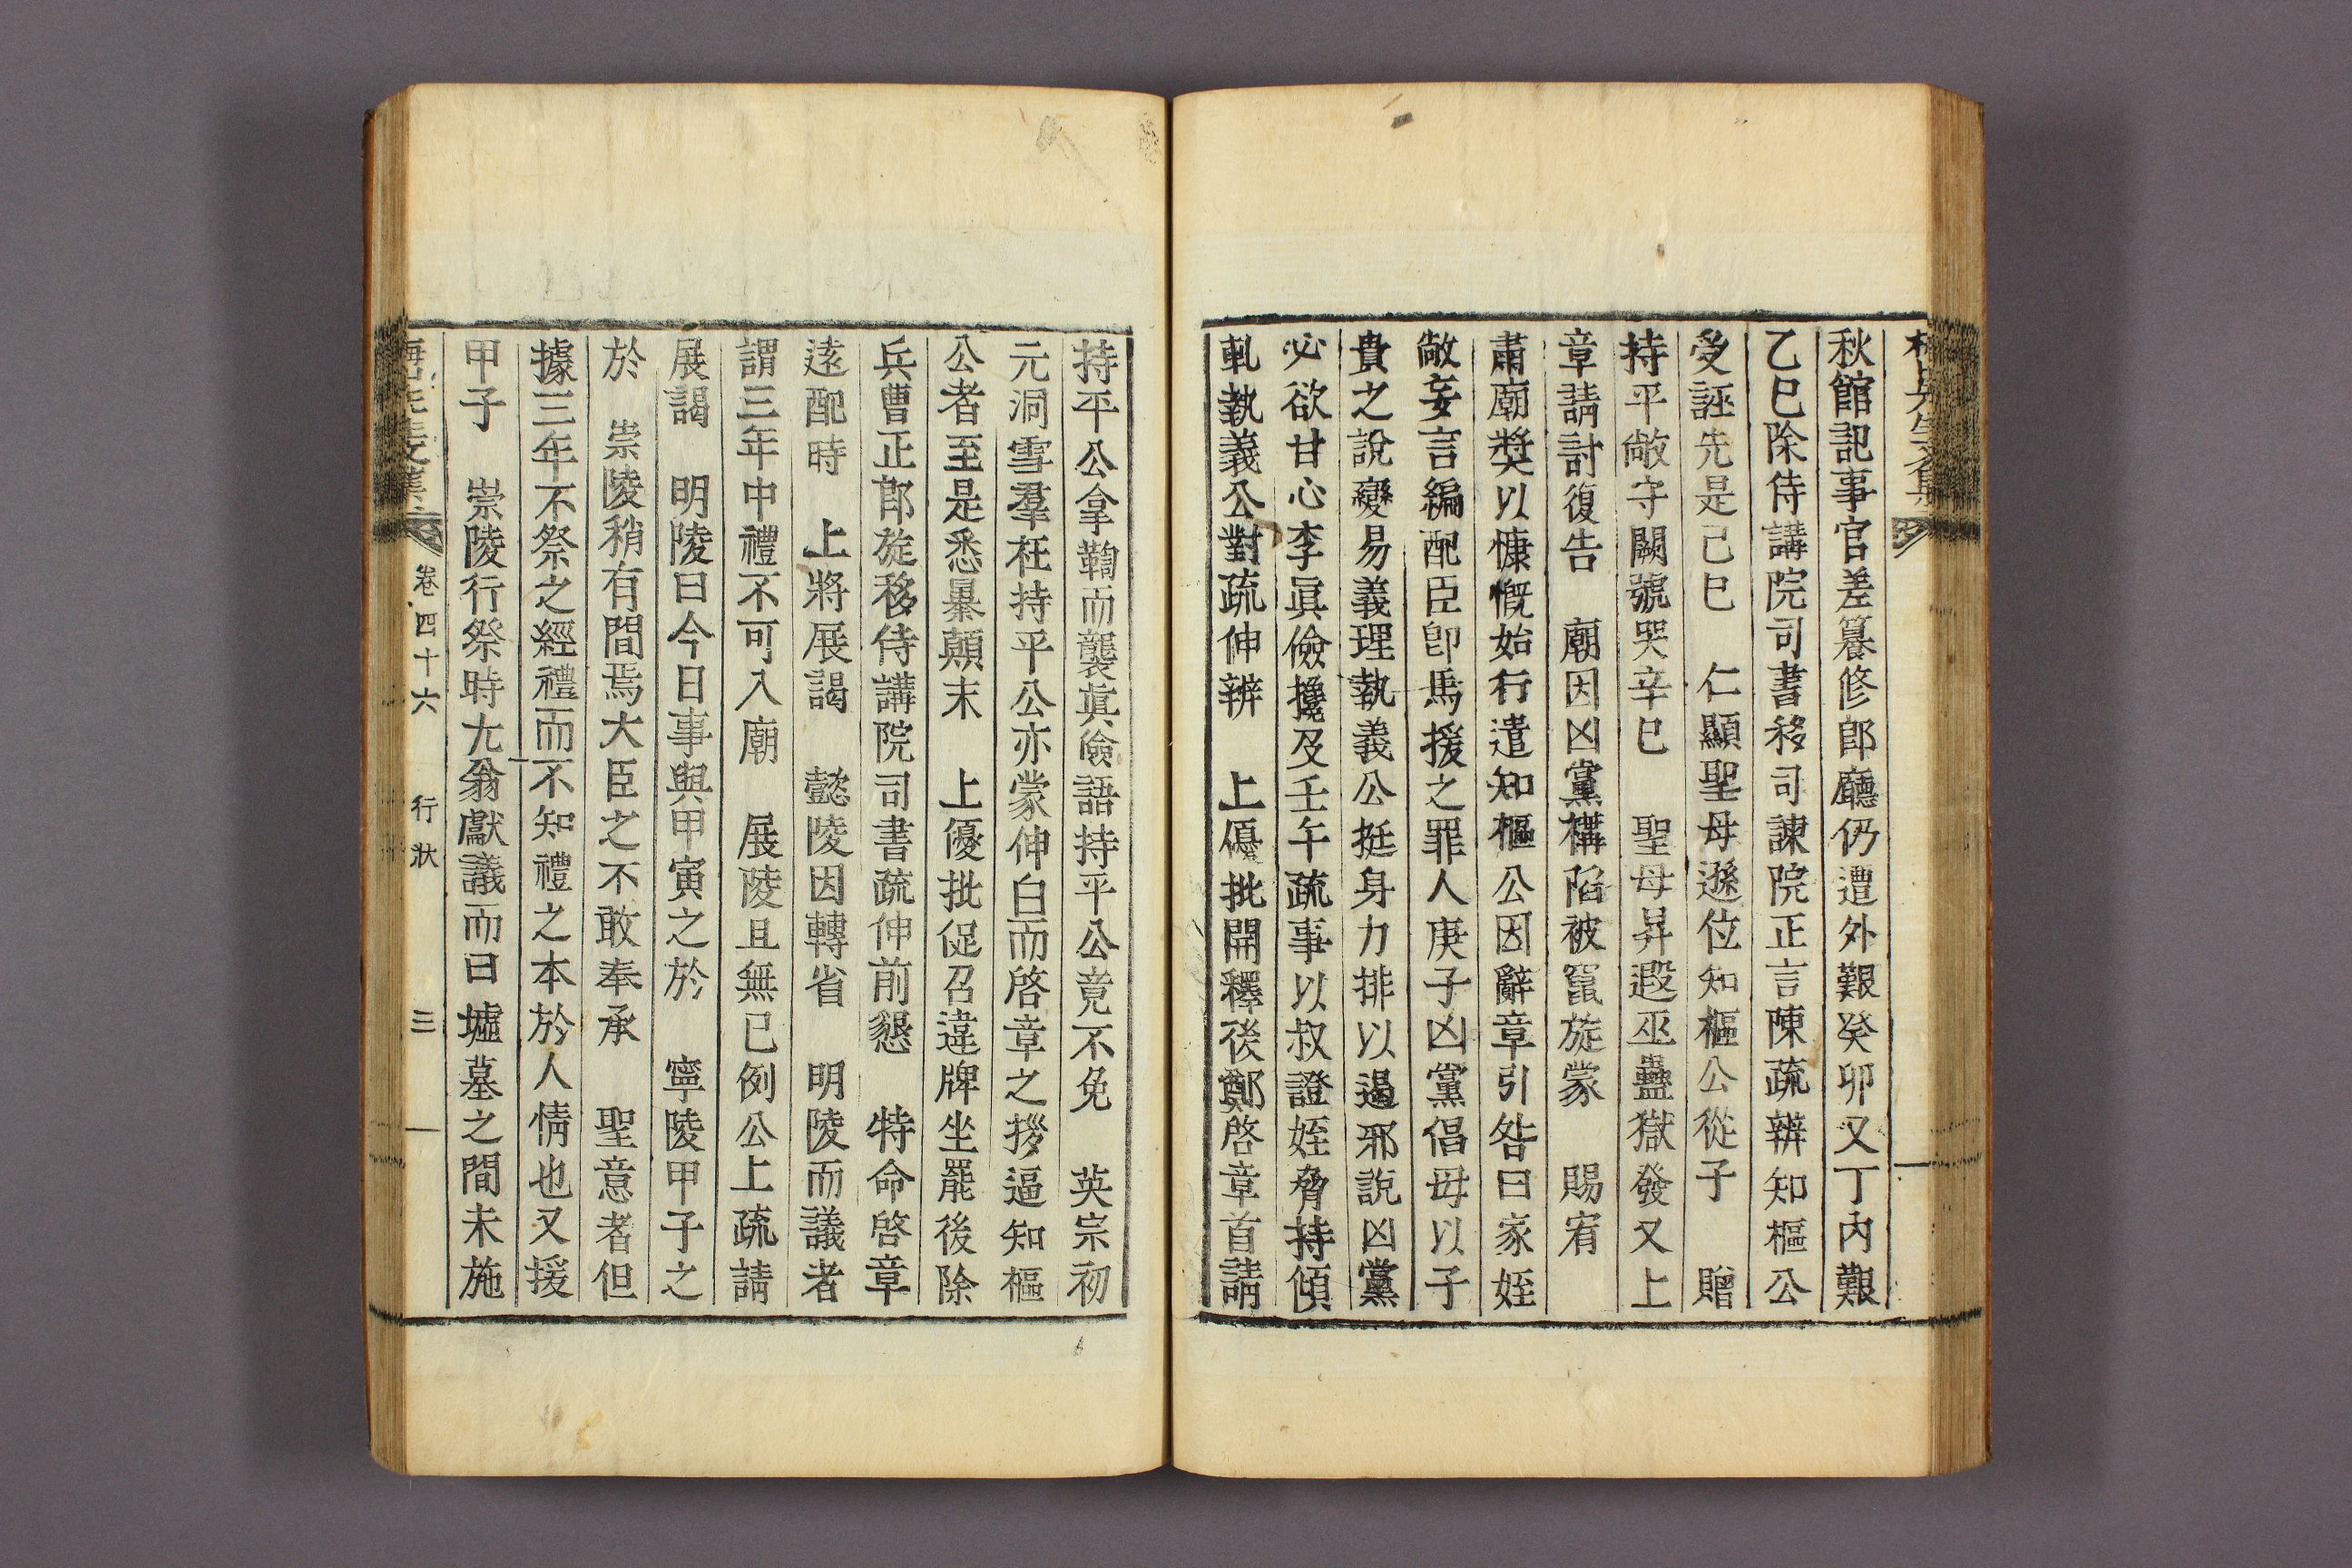 秋館記事官差纂修郎廳仍遭外艱癸卯又丁內艱
乙巳除侍講院司書移司諫院正言陳疏辨知樞公
受誣先是己巳 仁顯聖母遜位知樞公從子 贈
持平敞守闕號哭辛巳 聖母昇遐巫蠱獄發又上
章請討復告 廟因凶黨構陷被竄旋蒙 賜宥
肅廟奬以慷慨始行遣知樞公因辭章引咎曰家姪
敞妄言編配臣卽馬援之罪人庚子凶黨倡母以子
貴之說變易義理執義公挺身力排以遏邪說凶黨
必欲甘心李眞儉攙及壬午疏事以叔證姪脅持傾
軋執義公對疏伸辨 上優批開釋後鄭啓章首請
持平公拿鞫而襲眞儉語持平公竟不免 英宗初
元洞雪羣枉持平公亦蒙伸白而啓章之拶逼知樞
公者至是悉暴顛末 上優批促召違牌坐罷後除
兵曹正郎旋移侍講院司書疏伸前懇 特命啓章
遠配時 上將展謁 懿陵因轉省 明陵而議者
謂三年中禮不可入廟 展陵且無已例公上疏請
展謁 明陵曰今日事與甲寅之於 寧陵甲子之
於 崇陵稍有間焉大臣之不敢奉承 聖意者但
據三年不祭之經禮而不知禮之本於人情也又援
甲子 崇陵行祭時尤翁獻議而曰墟墓之間未施
卷四十六 行狀 三